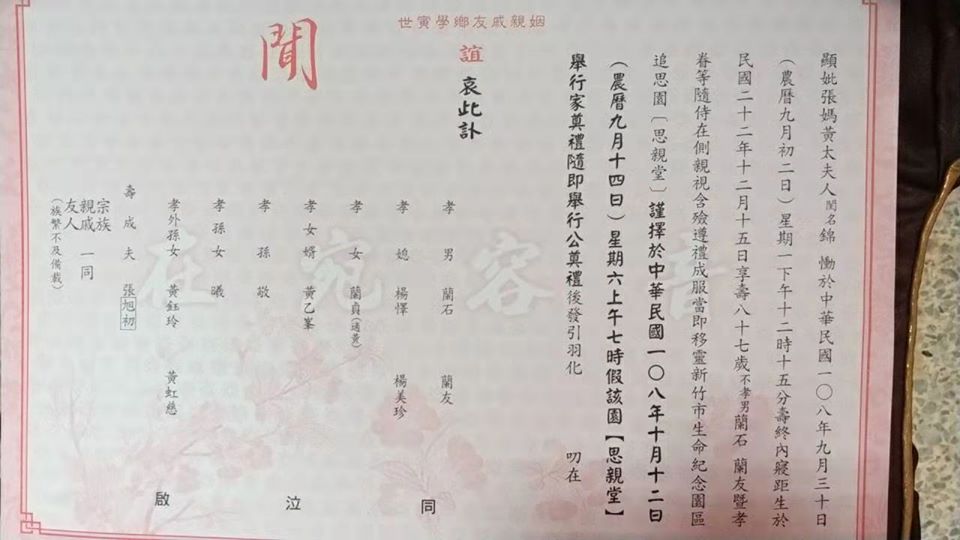 顯妣張媽黃太夫人閨名錦 慟於中華民國一〇八年九月三十日
（農曆九月初二日）星期一下午十二時十五分壽終內寢距生於
民國二十二年十二月十五日享壽八十七歲不孝男蘭石 蘭友暨孝
眷等隨侍在側親視含殮遵禮成服當即移靈新竹市生命紀念園區
追思園〔思親堂〕謹擇於中華民國一〇八年十月十二日
（農曆九月十四日）星期六上午七時假該園【思親堂】
舉行家奠禮隨即舉行公奠禮後發引羽化 叨在
姻親戚友鄉學寅世
誼
哀此訃
聞
孝男 蘭石 蘭友
孝媳 楊懌 楊美珍
孝女 蘭貞（適黃）
孝女婿 黃乙峯
孝孫 敬
孝孫女 曦
孝外孫女 黃鈺玲 黃虹慈
壽成夫 張旭初
宗族
親戚 一同
友人
（族繁不及備載）
同 泣 啟
音容宛在